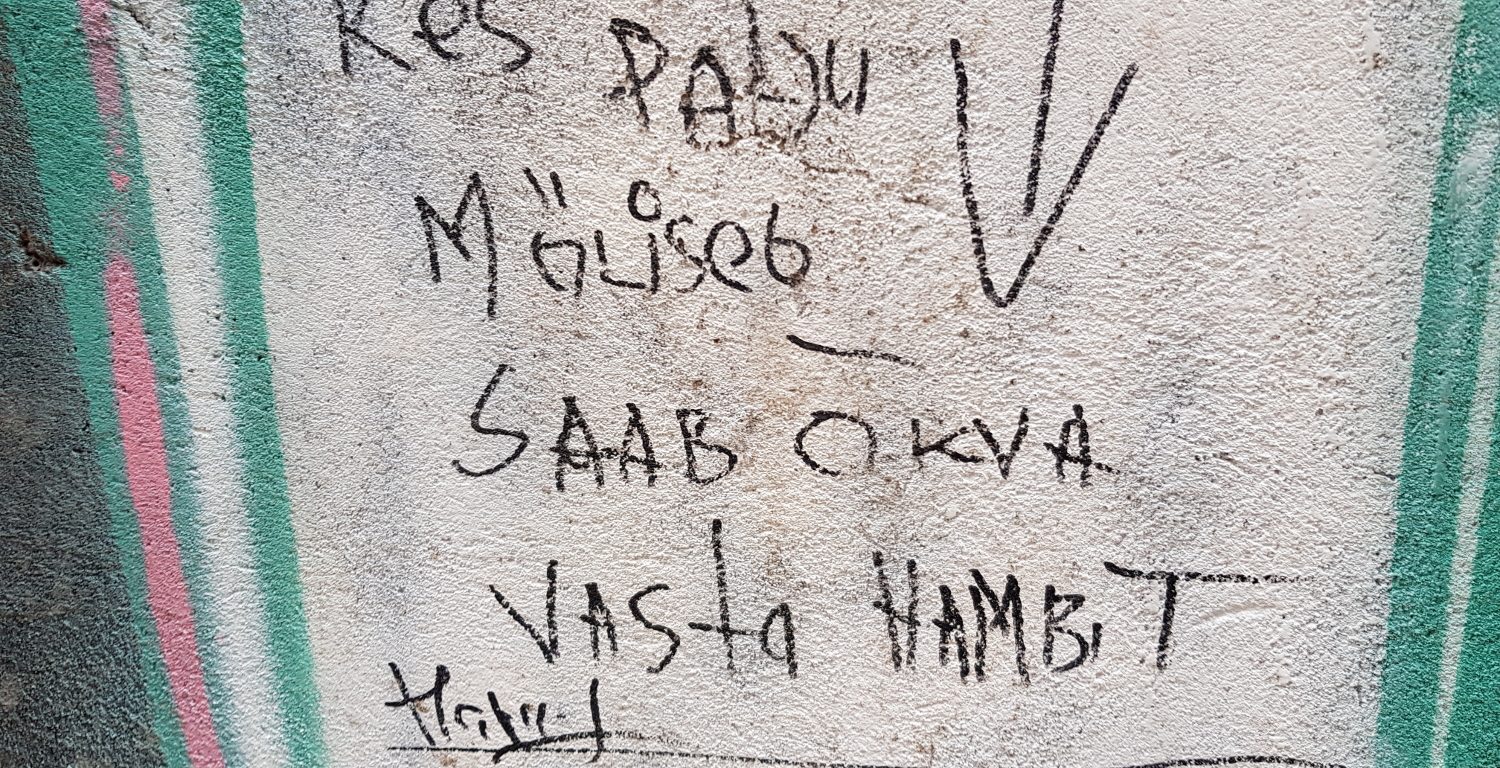 Kes PALJU
Möliseb
SAAB OKVA
VASta HAMBiT